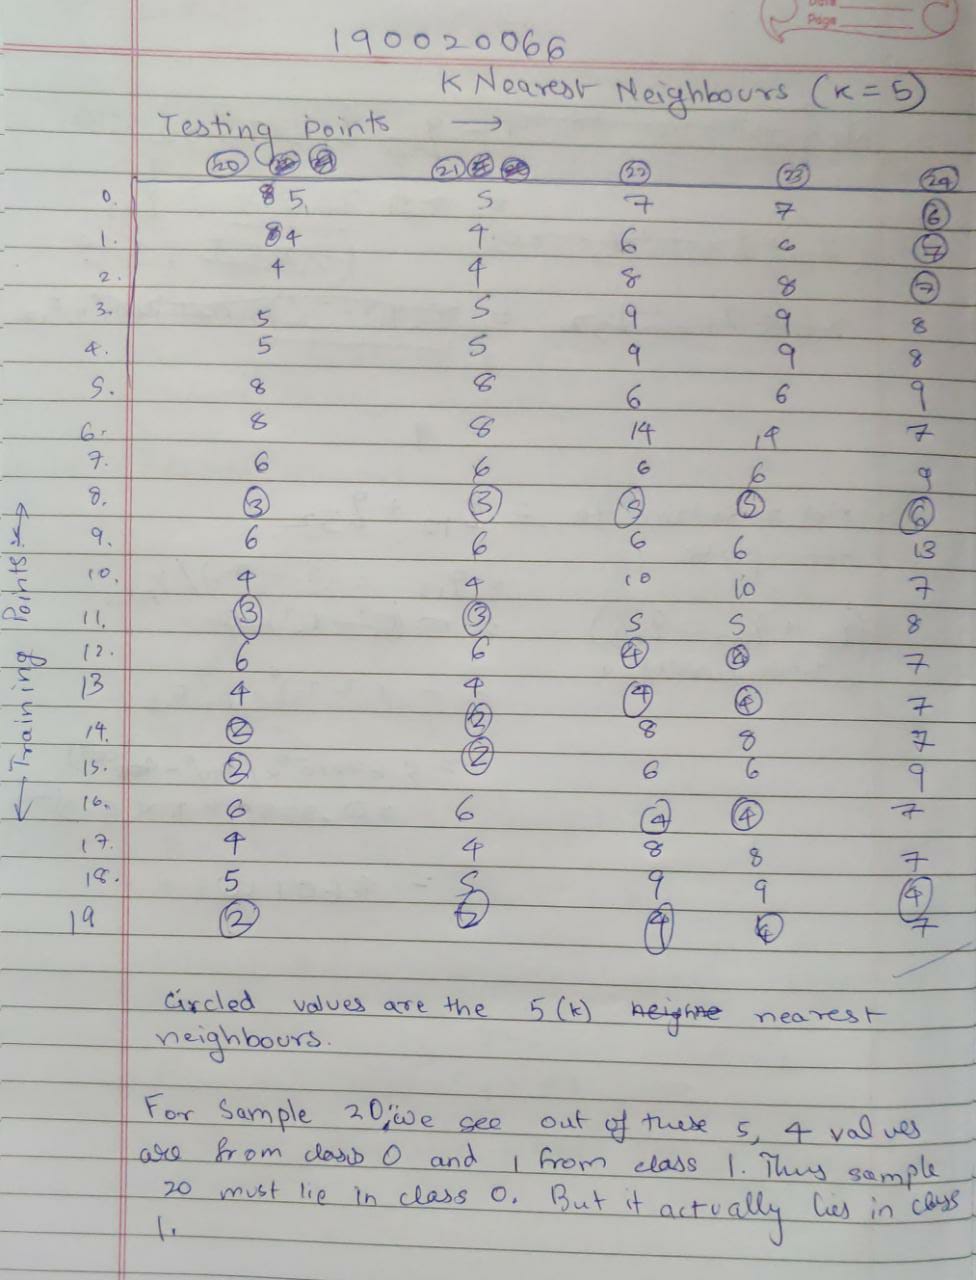 Date
Page
190020066
K Nearest Neighbours (K = 5)
Testing points →
20 21 22 23 24
0. 5 5 7 7 6
1. 4 4 6 6 7
2. 4 4 8 8 7
3. 5 5 9 9 8
4. 5 5 9 9 8
5. 8 8 6 6 9
6. 8 8 14 14 7
7. 6 6 6 6 9
8. 3 3 5 5 6
9. 6 6 6 6 13
10. 4 4 10 10 7
11. 3 3 5 5 8
12. 6 6 4 4 7
13 4 4 4 4 7
14. 2 2 8 8 7
15. 2 2 6 6 9
16. 6 6 4 4 7
17. 4 4 8 8 7
18. 5 5 9 9 4
19 2 2 4 4 7
← Training Points →
Circled values are the 5 (k) nearest
neighbours.
For Sample 20, we see out of these 5, 4 values
are from class 0 and 1 from class 1. Thus sample
20 must lie in class 0. But it actually lies in class
1.